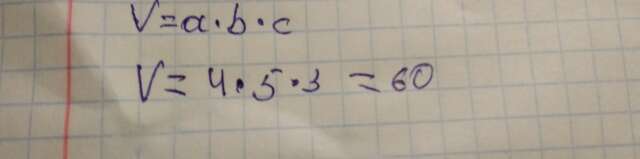 V=a·b·c
V=4·5·3=60